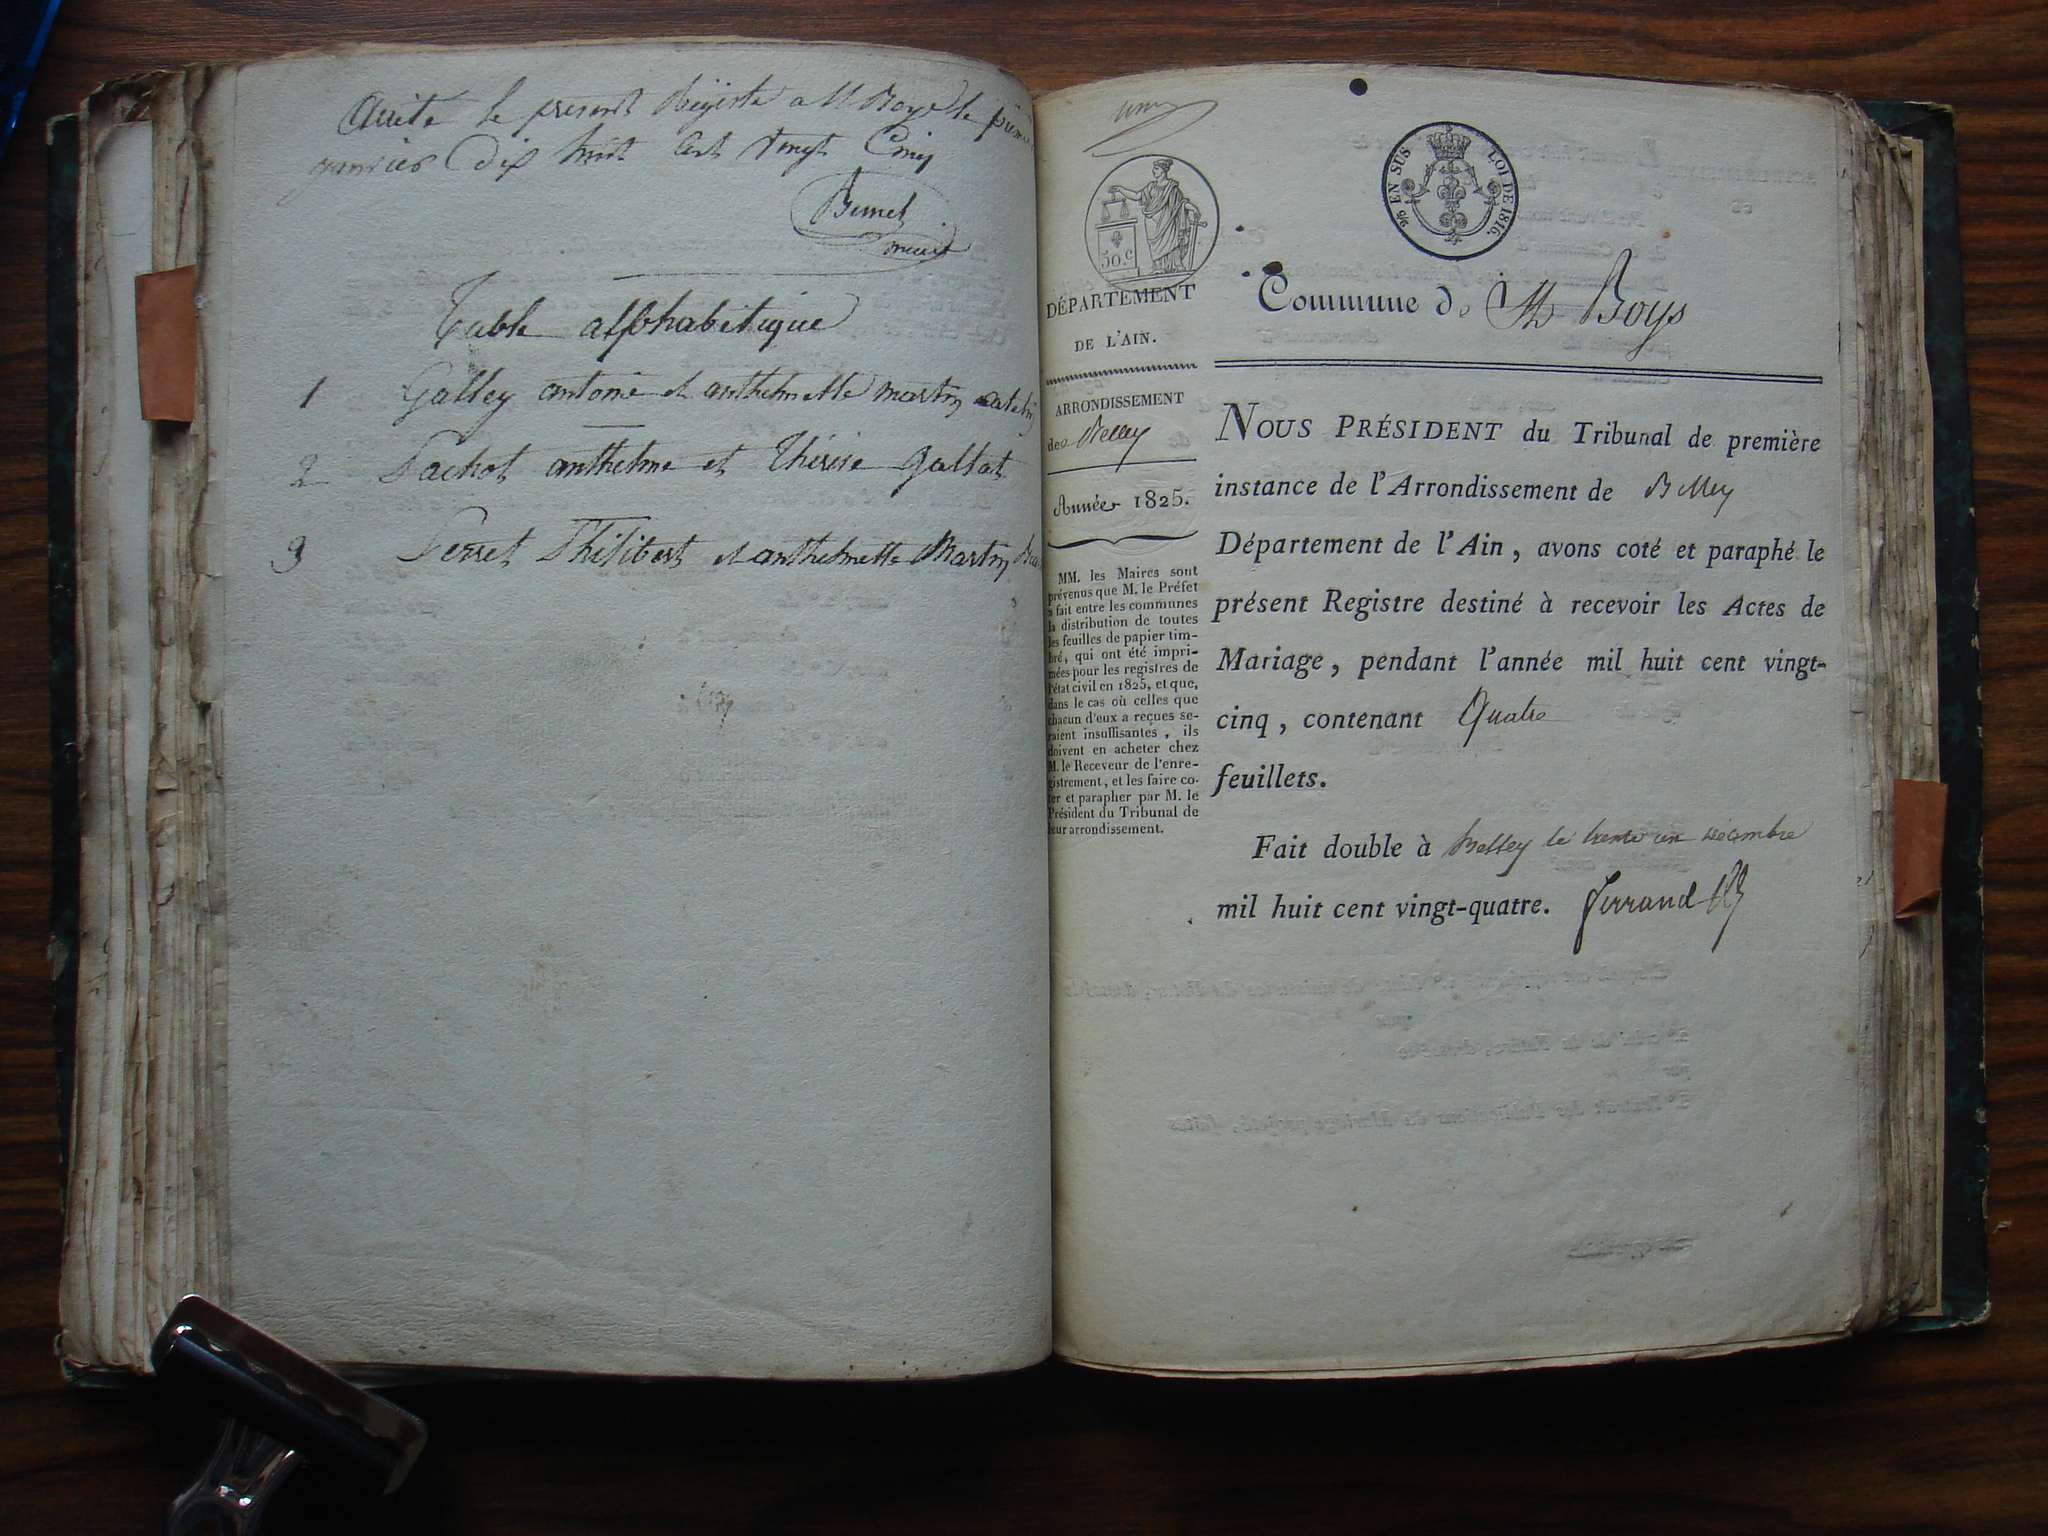 Arrêté le present Régistre a St Boys le
janvier dix huit cent vingt Cinq
Table alphabétique
1 Galley antoine et anthelmette martin
2 Pachot anthelme et Thérèse Gallat
3 Perret Philibert et anthelmette Martin
50.c
2/5 EN SUS LOI DE 1816.
DÉPARTEMENT
DE L'AIN.
ARRONDISSEMENT
de Belley
Année 1825.
MM. les Maires sont
prévenus que M. le Préfet
a fait entre les communes
la distribution de toutes
les feuilles de papier tim-
bré, qui ont été impri-
mées pour les registres de
l'état civil en 1825, et que,
dans le cas où celles que
chacun d'eux a reçues se-
raient insuffisantes, ils
doivent en acheter chez
M. le Receveur de l'enre-
gistrement, et les faire co-
ter et parapher par M. le
Président du Tribunal de
leur arrondissement.
Commune de St Boys
NOUS PRÉSIDENT du Tribunal de première
instance de l'Arrondissement de Belley
Département de l'Ain, avons coté et paraphé le
présent Registre destiné à recevoir les Actes de
Mariage, pendant l'année mil huit cent vingt-
cinq, contenant Quatre
feuillets.
Fait double à Belley le trente un décembre
mil huit cent vingt-quatre. Ferrand